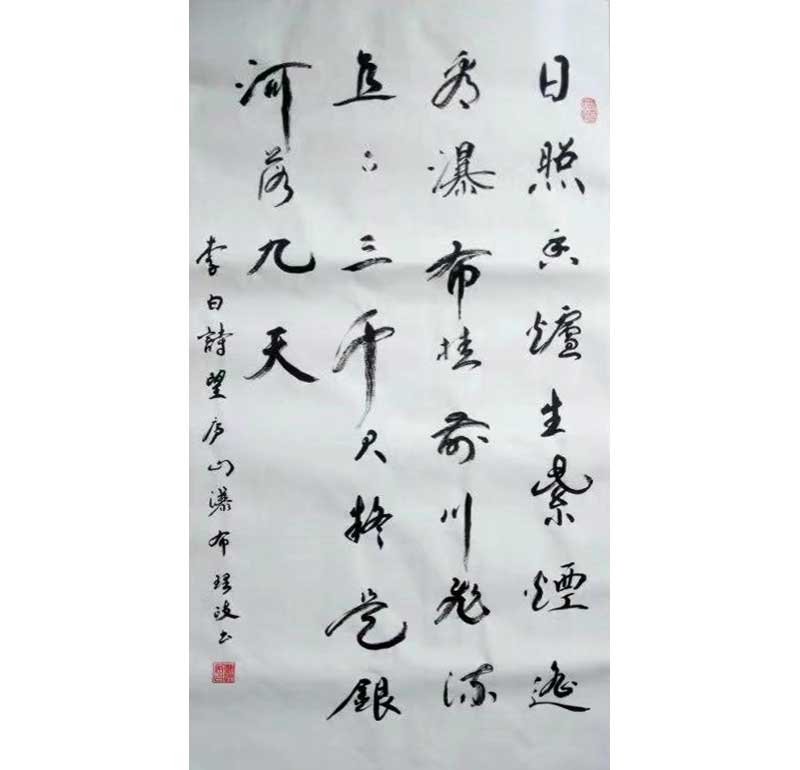 日照香爐生紫煙遙
看瀑布挂前川飛流
直下三千尺疑是銀
河落九天
李白詩望庐山瀑布书